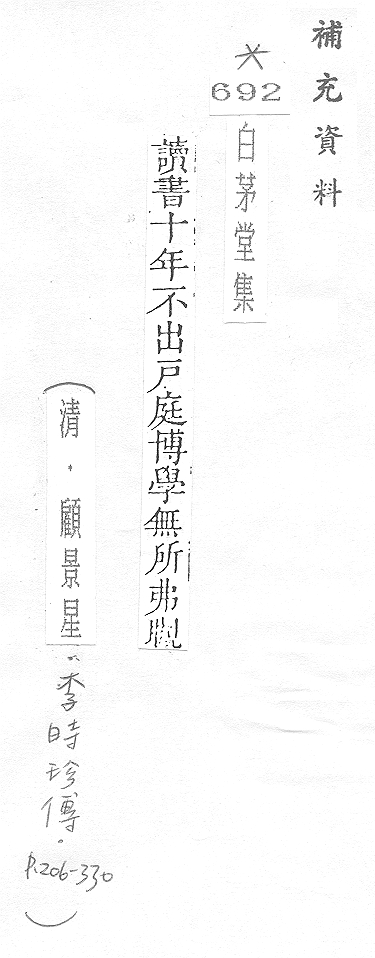 補充資料
692
白茅堂集
讀書十年不出戸庭博學無所弗覰
（清．顧景星：李時珍傳。P.206-330）